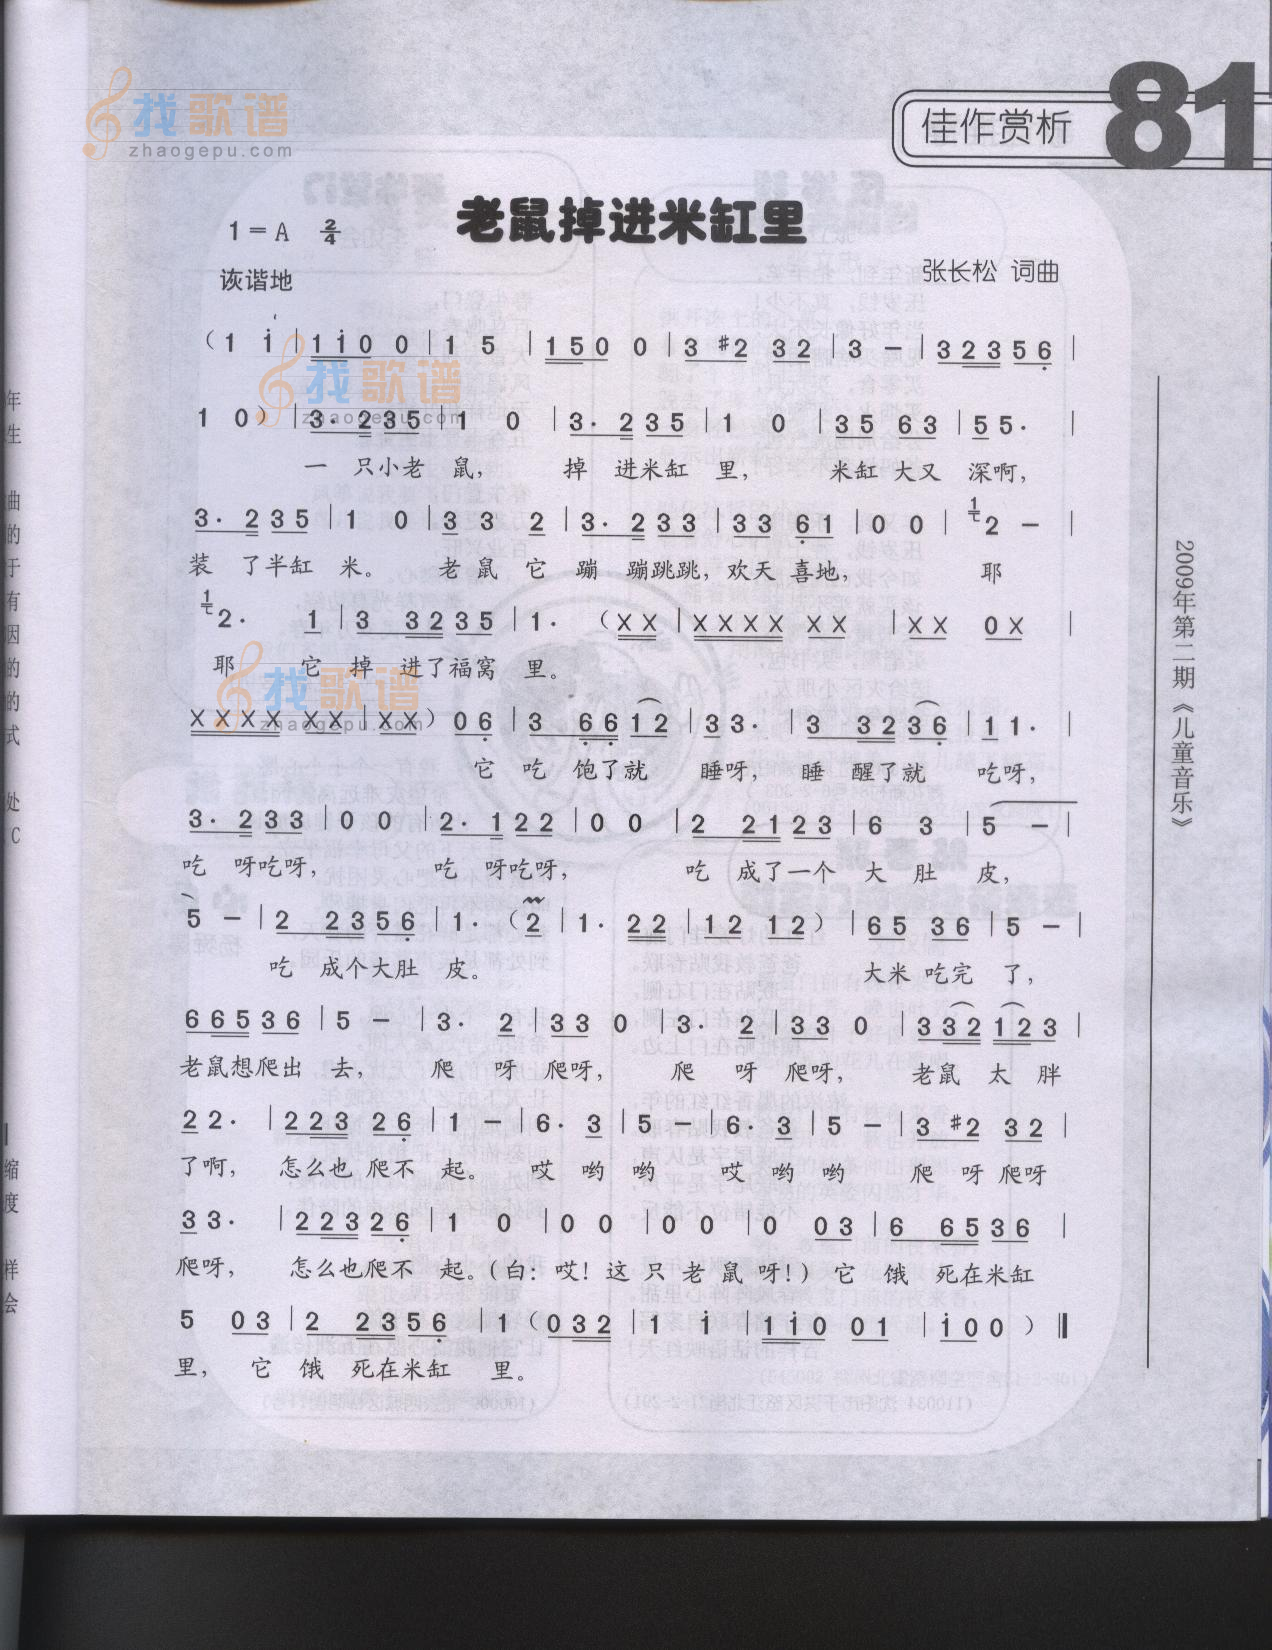 找歌谱
zhaogepu.com
佳作赏析 81
老鼠掉进米缸里
1=A 2/4
诙谐地
张长松 词曲
(1 i̇ | 1 i̇ 0 0 | 1 5 | 1 5 0 0 | 3 #2 3 2 | 3 – | 3 2 3 5 6̣ |
1 0) | 3· 2 3 5 | 1 0 | 3· 2 3 5 | 1 0 | 3 5 6 3 | 5 5· |
一 只小老 鼠, 掉 进米缸 里, 米缸 大又 深啊,
3· 2 3 5 | 1 0 | 3 3 2 | 3· 2 3 3 | 3 3 6̣ 1 | 0 0 | 1 2 – |
装 了半缸 米。 老 鼠 它 蹦 蹦跳跳, 欢天 喜地, 耶
1 2· 1 | 3 3 2 3 5 | 1· (X X | X X X X X X | X X 0 X |
耶 它 掉 进了福窝 里。
找歌谱
zhaogepu.com
X X X X X X | X X) 0 6̣ | 3 6̣ 6̣ 1 2 | 3 3· | 3 3 2 3 6̣ | 1 1· |
它 吃 饱了就 睡呀, 睡 醒了就 吃呀,
3· 2 3 3 | 0 0 | 2· 1 2 2 | 0 0 | 2 2 1 2 3 | 6 3 | 5 – |
吃 呀吃呀, 吃 呀吃呀, 吃 成了一个 大 肚 皮,
5 – | 2 2 3 5 6̣ | 1· (2 | 1· 2 2 | 1 2 1 2) | 6 5 3 6 | 5 – |
吃 成个大肚 皮。 大米 吃完 了,
6 6 5 3 6 | 5 – | 3· 2 | 3 3 0 | 3· 2 | 3 3 0 | 3 3 2 1 2 3 |
老鼠想爬出 去, 爬 呀 爬呀, 爬 呀 爬呀, 老鼠 太 胖
2 2· | 2 2 3 2 6̣ | 1 – | 6· 3 | 5 – | 6· 3 | 5 – | 3 #2 3 2 |
了啊, 怎么也 爬不 起。 哎 哟 哟 哎 哟 哟 爬 呀 爬呀
3 3· | 2 2 3 2 6̣ | 1 0 | 0 0 | 0 0 | 0 0 3 | 6 6 5 3 6 |
爬呀, 怎么也爬不 起。(白:哎!这 只 老 鼠 呀!) 它 饿 死在米缸
5 0 3 | 2 2 3 5 6̣ | 1 (0 3 2 | 1 i̇ | 1 i̇ 0 0 1 | i̇ 0 0) ‖
里, 它 饿 死在米缸 里。
2009年第二期《儿童音乐》
年
生
曲
的
于
有
因
的
的
式
处
C
缩
度
样
会